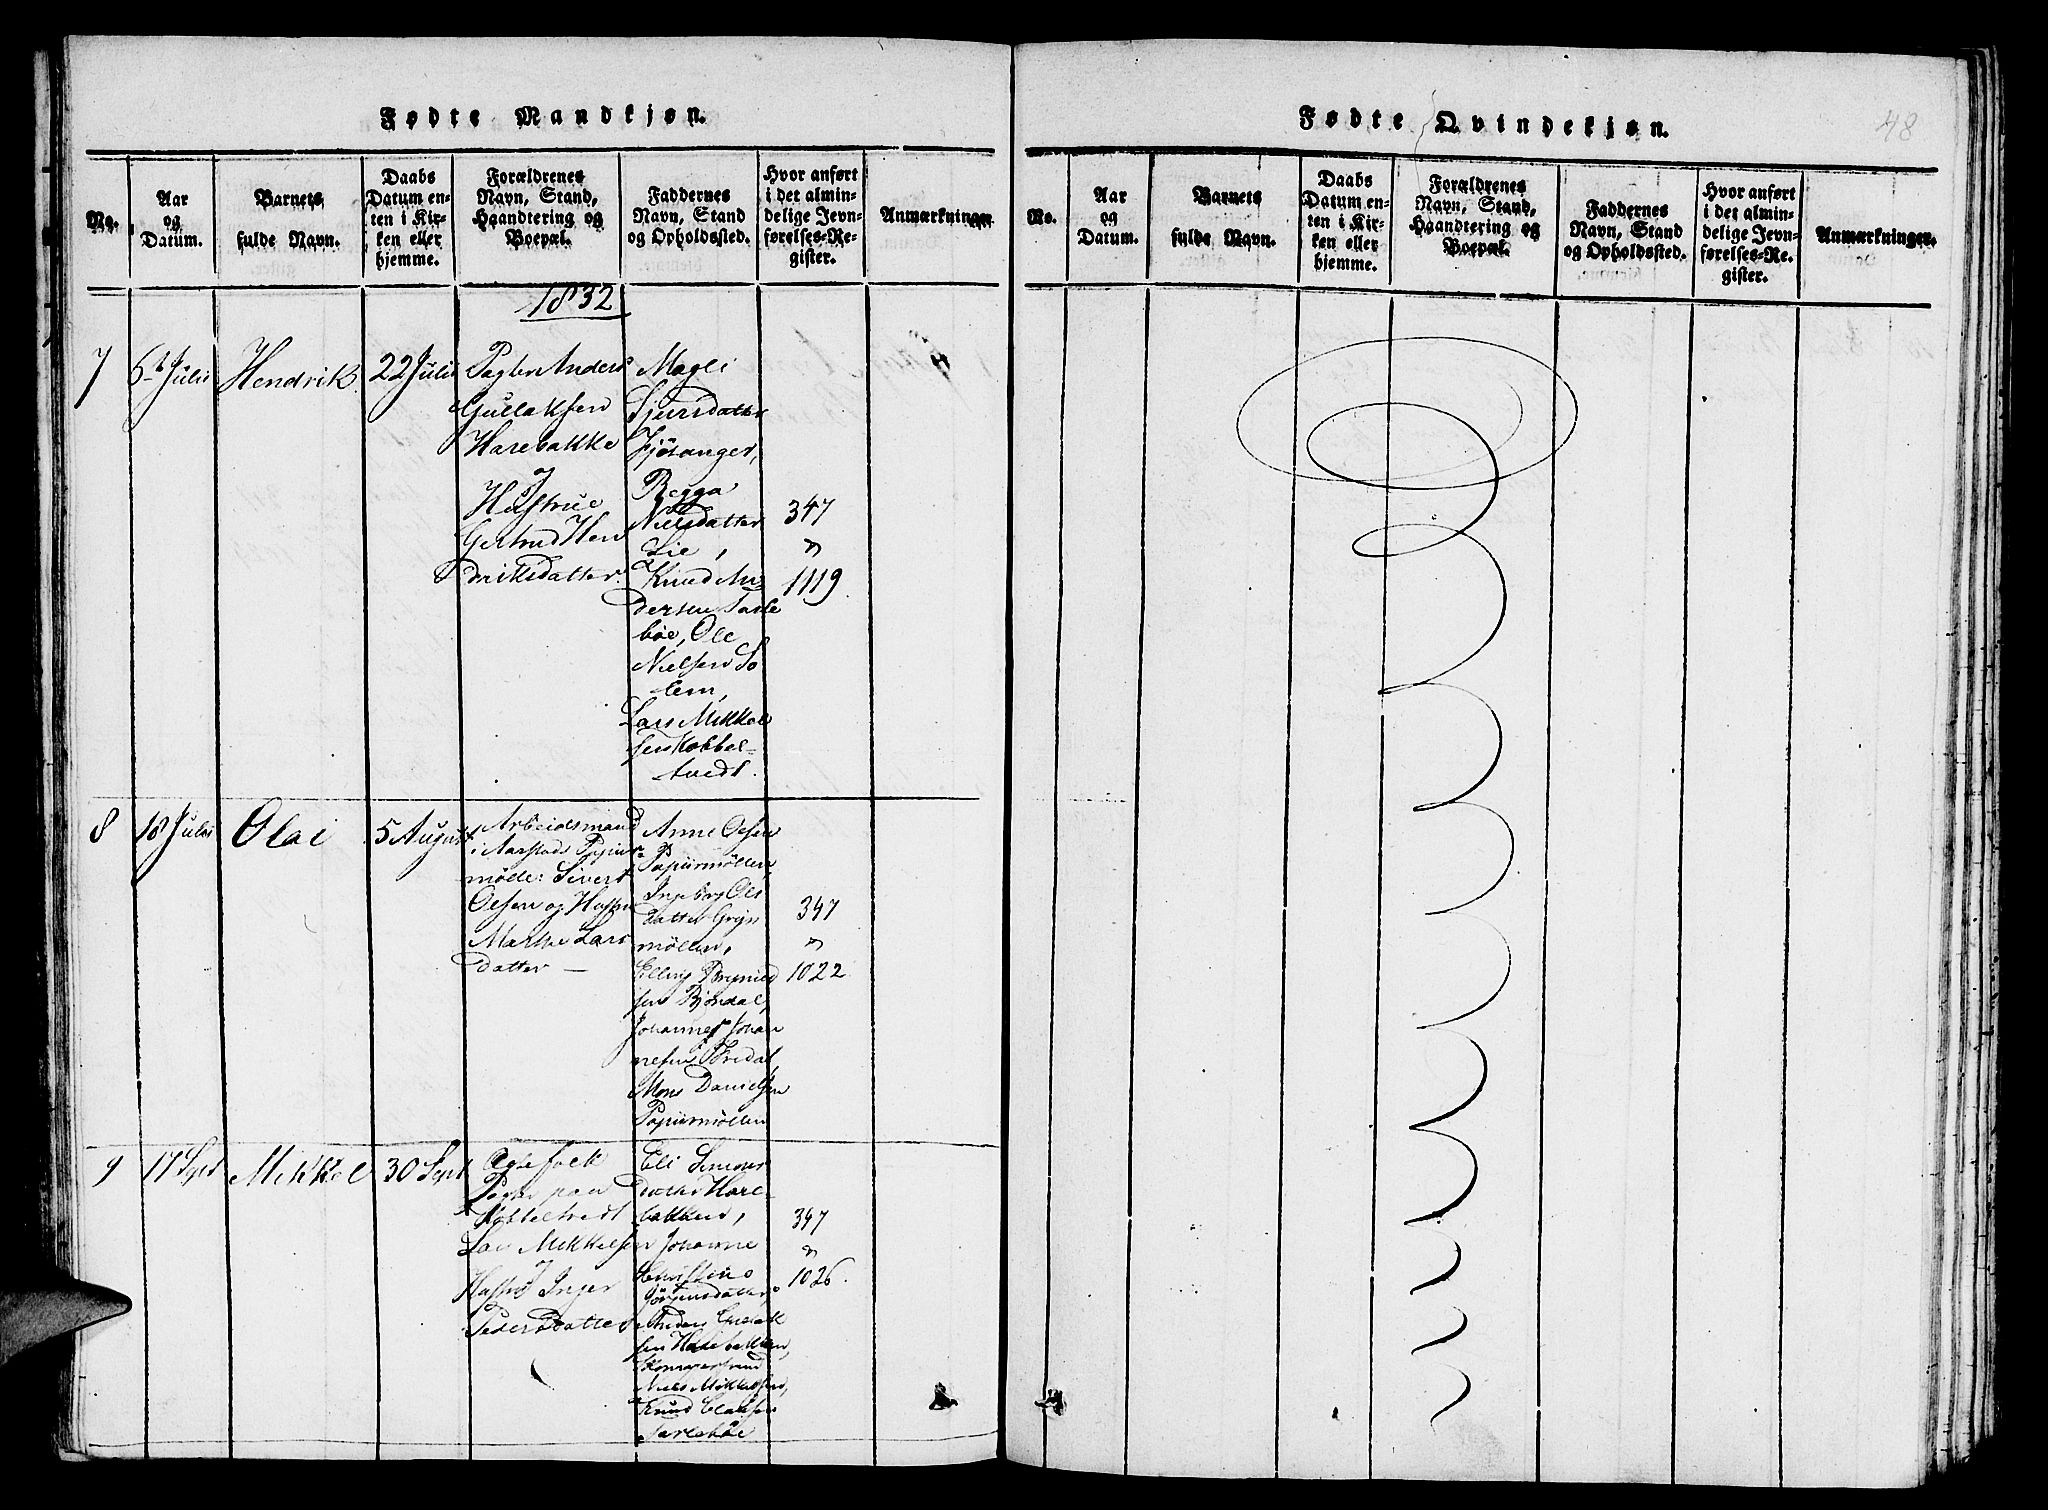 Fødte Mandkjøn.
No.
Aar og Datum.
Barnets fulde Navn.
Daabs Datum enten i Kirken eller hjemme.
Forældrenes Navn, Stand, Haandtering og Boepæl.
Faddernes Navn, Stand og Opholdssted.
Hvor anført i det almindelige Jevnførelses-Register.
Anmærkninger.
1832
7
6t Julii
Hendrik
22 Julii
Pagter Anders
Gullaksen
Harebakke
Hustrue
Gertrud Hen
driksdatter.
Magli
Sjursdatter
Fjøsanger,
Begga
Nielsdatter
Lie,
Knud An
dersen Sarle
böe, Ole
Nielsen So
lem,
Lars Mikkel
sen Kobbel-
tvedt.
347
"
1119
8
18 Julii
Olai
5 August
Arbeidsmand
i Aarstads Papiir
mölle: Sivert
Olsen og Hustru
Marthe Lars
datter —
Anne Olsen
Papiirmöllen,
Ingeborg Ols
datter Gryn
möllen,
Elling Brynild
sen Björndal,
Johannes Johan
nesen
Mons Danielsen
Papiirmöllen
347
"
1022
9
17 Sept
Mikkel
30 Sept
Ægtefolk
Pagter paa
Kobbeltvedt
Lars Mikkelsen
Hustru Inger
Pedersdatter
Eli Simons
datter Hare-
bakken,
Johanne
Christine
Jörgensdatter,
Anders Gullak
sen Harebakken,
Niels Mikkelsen,
Knud
Sarleböe
347
"
1026.
Fødte Qvindekjøn.
48
No.
Aar og Datum.
Barnets fulde Navn.
Daabs Datum enten i Kirken eller hjemme.
Forældrenes Navn, Stand, Haandtering og Boepæl.
Faddernes Navn, Stand og Opholdssted.
Hvor anført i det almindelige Jevnførelses-Register.
Anmærkninger.